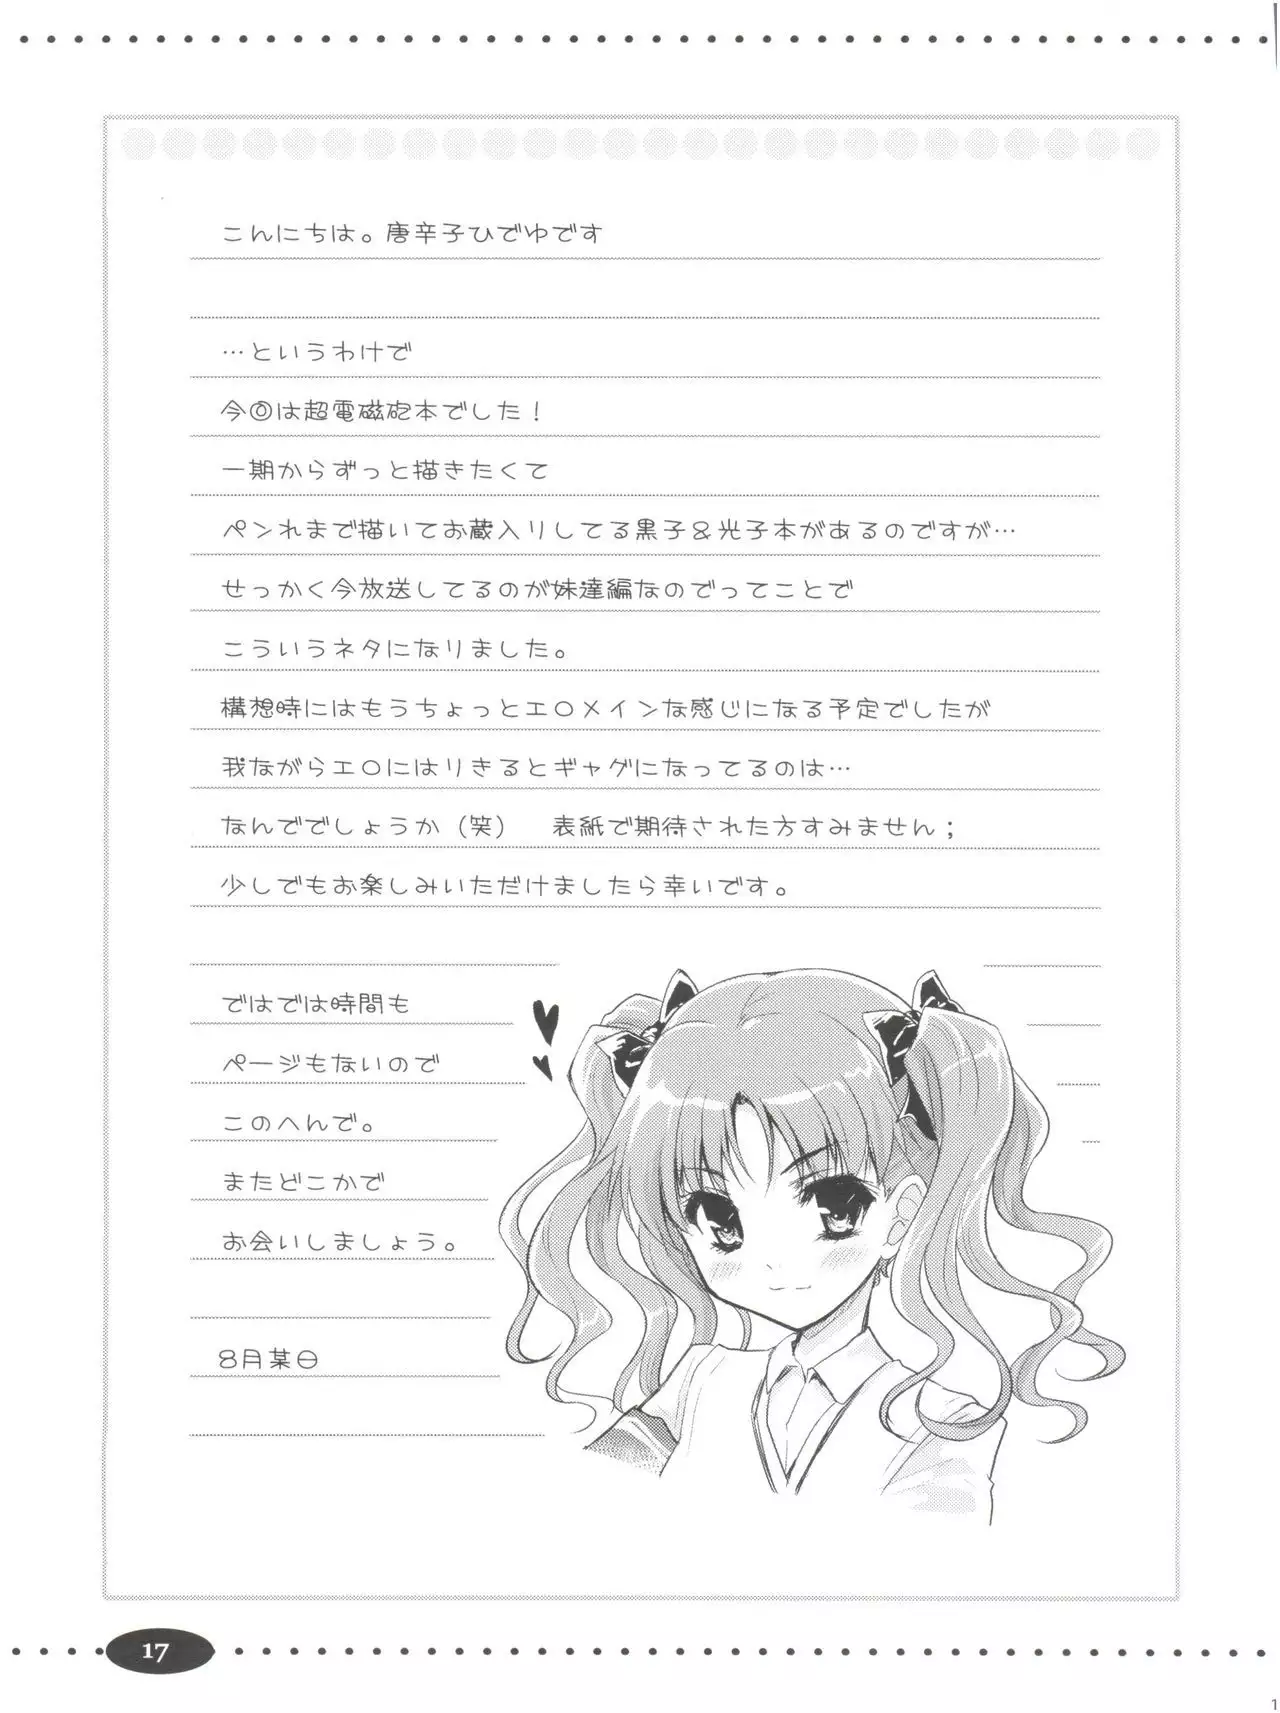 こんにちは。唐辛子ひでゆです
…というわけで
今回は超電磁砲本でした！
一期からずっと描きたくて
ペン入れまで描いてお蔵入りしてる黒子＆光子本があるのですが…
せっかく今放送してるのが妹達編なのでってことで
こういうネタになりました。
構想時にはもうちょっとエ〇メインな感じになる予定でしたが
我ながらエ〇にはりきるとギャグになってるのは…
なんででしょうか（笑）　表紙で期待された方すみません；
少しでもお楽しみいただけましたら幸いです。
ではでは時間も
ページもないので
このへんで。
またどこかで
お会いしましょう。
8月某日
17
1